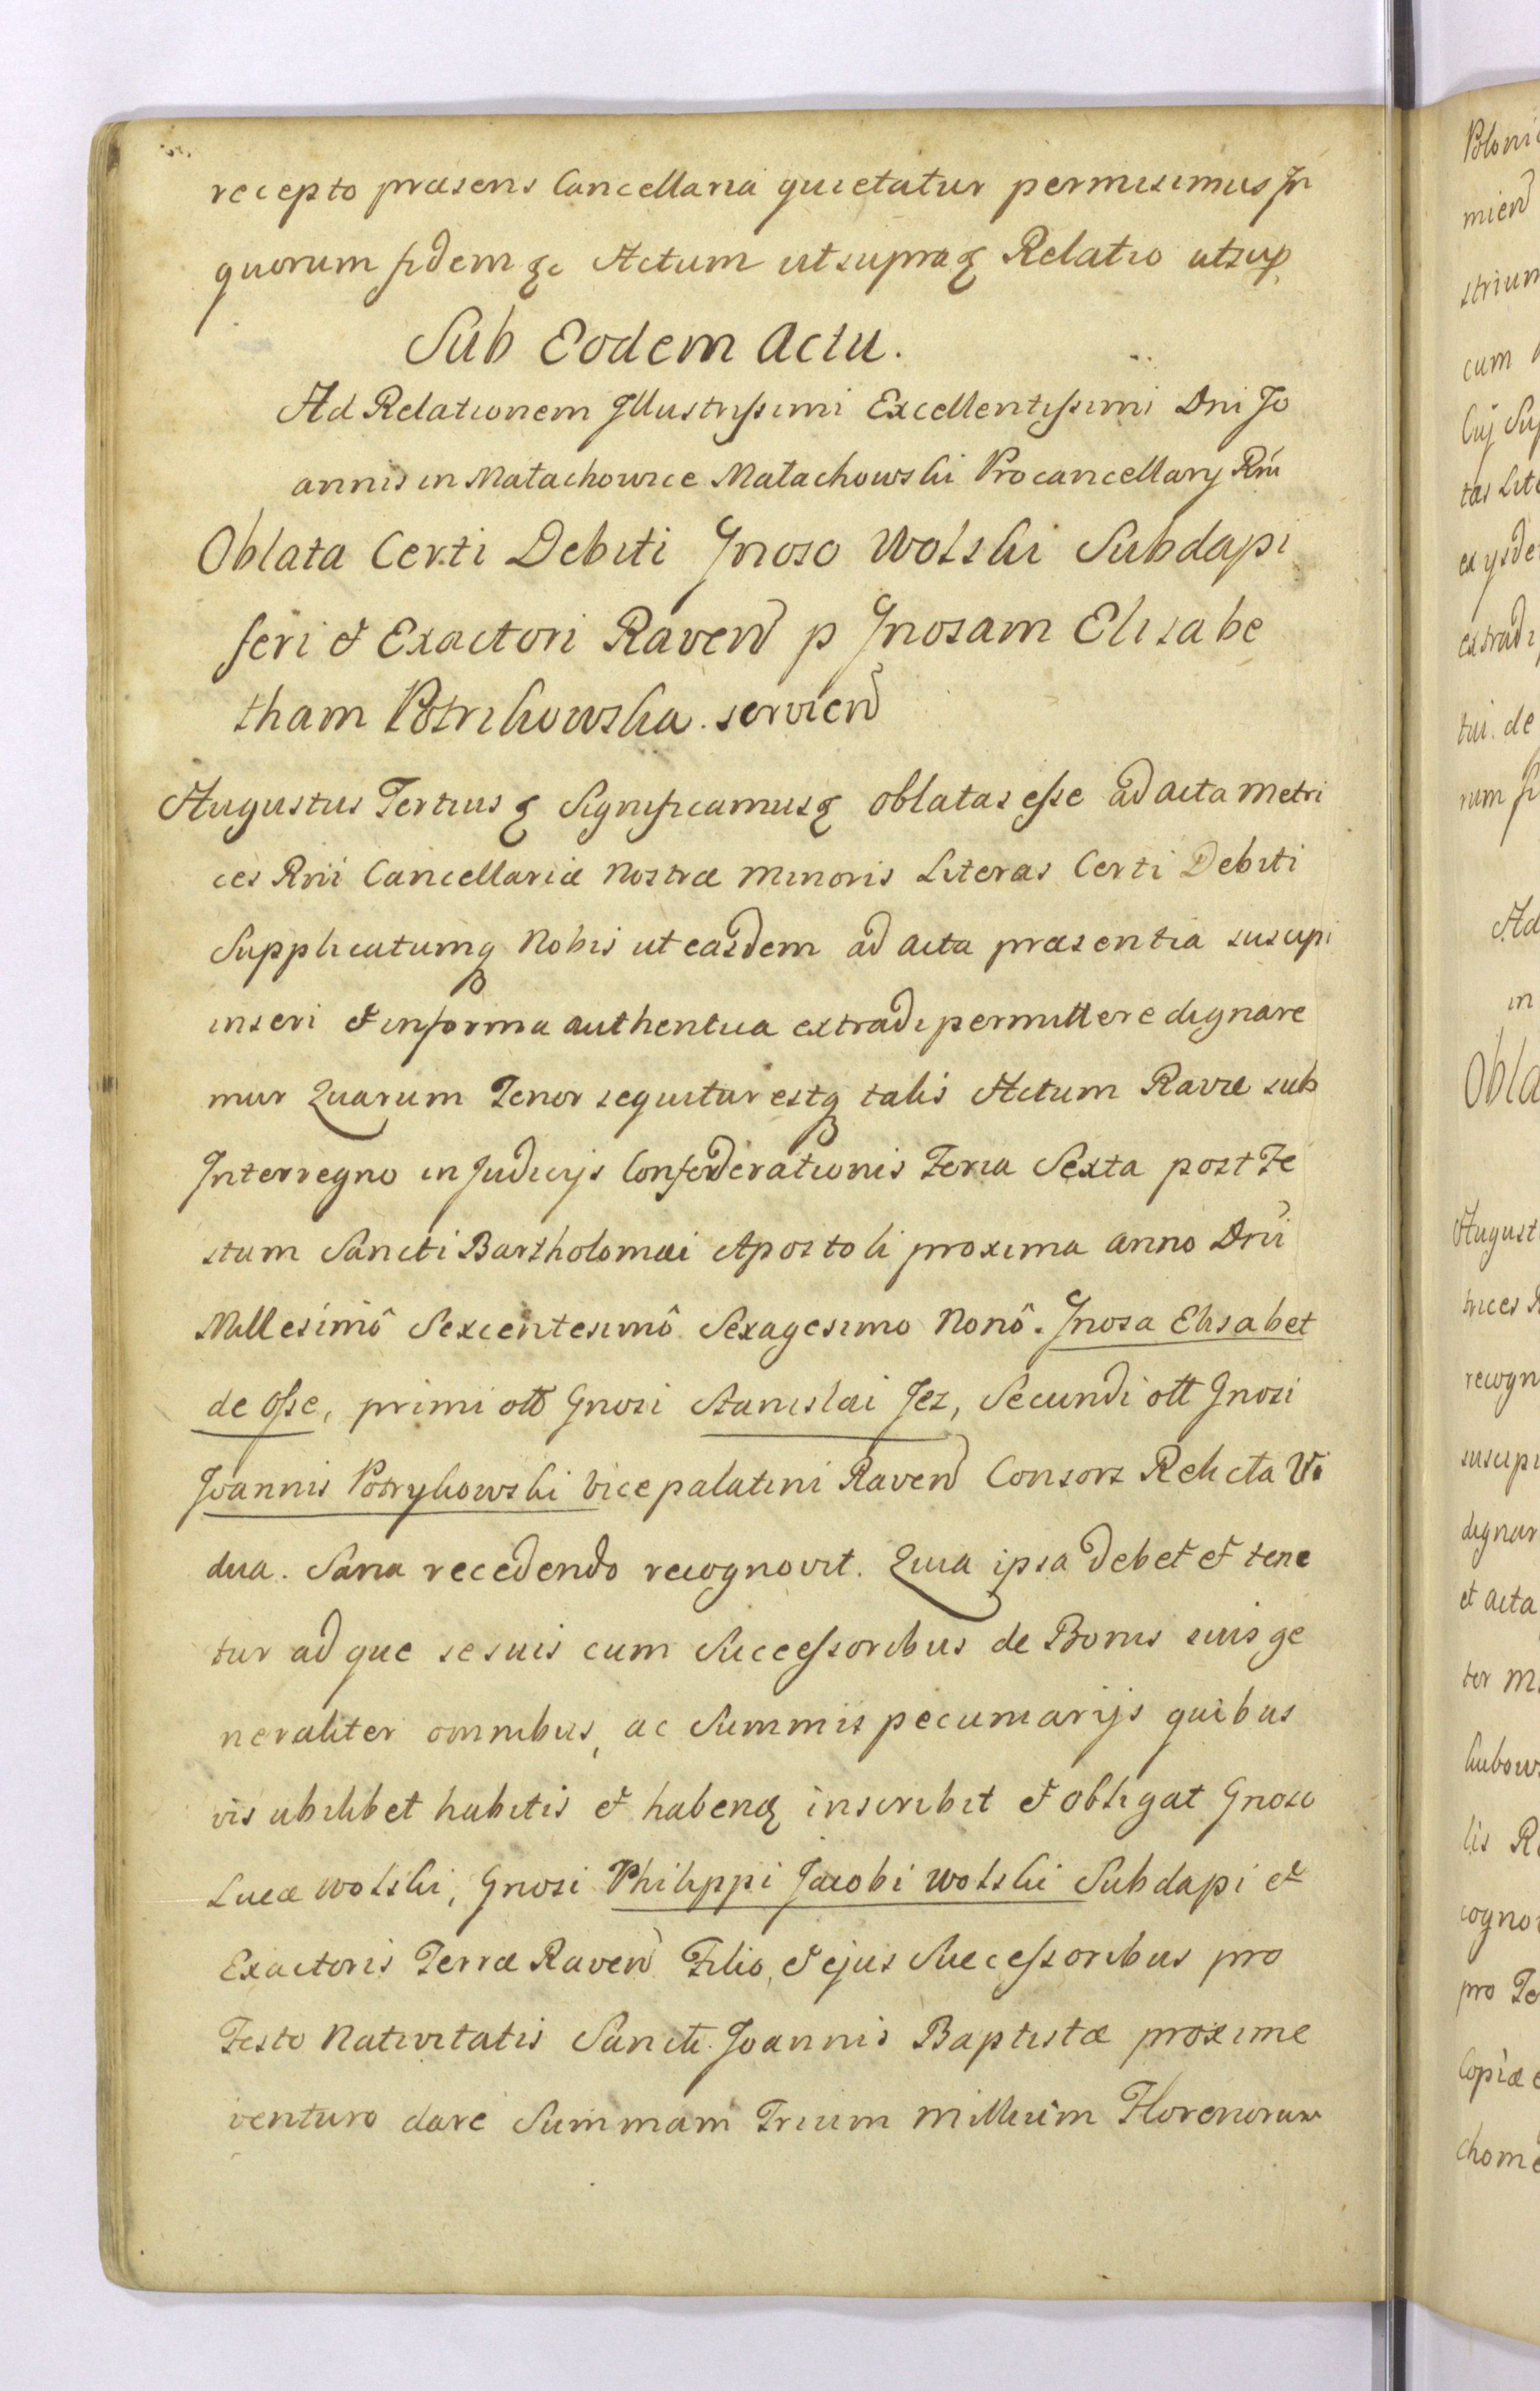 recepto præsens Cancellaria quietatur permisimus In
quorum fidem &c Actum ut supra & Relatio ut sup
Sub Eodem Actu.
Ad Relationem Illustrissimi Excellentissimi Dni Jo
annis in Małachowice Małachowski Procancellarÿ Rni
Oblata Certi Debiti Gnoso Wolski Subdapi
feri et Exactori Raven p Gnosam Elisabe
tham Potrikowska servien
Augustus Tertius & Significamus & oblatas esse ad acta metri
ces Rni Cancellariæ Nostræ Minoris Literas Certi Debiti
Supplicatumq Nobis ut easdem ad acta præsentia suscipi
inseri et in forma authentica extradi permittere dignare
mur Quarum Tenor sequitur estq talis Actum Ravæ sub
Interregno in Judicijs Confœderationis Feria Sexta post Fe
stum Sancti Bartholomæi Apostoli proxima anno Dni
Millesimô Sexcentesimô Sexagesimo Nonô. Gnosa Elisabet
de Osse, primi ott Gnosi Stanislai Jez, Secundi ott Gnosi
Joannis Potrykowski Vicepalatini Raven Consors Relicta Vi
dua. Sana recedendo recognovit. Quia ipsa debet et tene
tur ad que se suis cum Successoribus de Bonis suis ge
neraliter omnibus, ac Summis pecuniarijs quibus
vis ubilibet habitis et haben& inscribit et obligat Gnoso
Lucæ Wolski, Gnosi Philippi Jacobi Wolski Subdapi et
Exactoris Terræ Raven Filio, et ejus Successoribus pro
Festo Nativitatis Sancti Joannis Baptistæ proxime
venturo dare Summam Trium Millium Florenorum